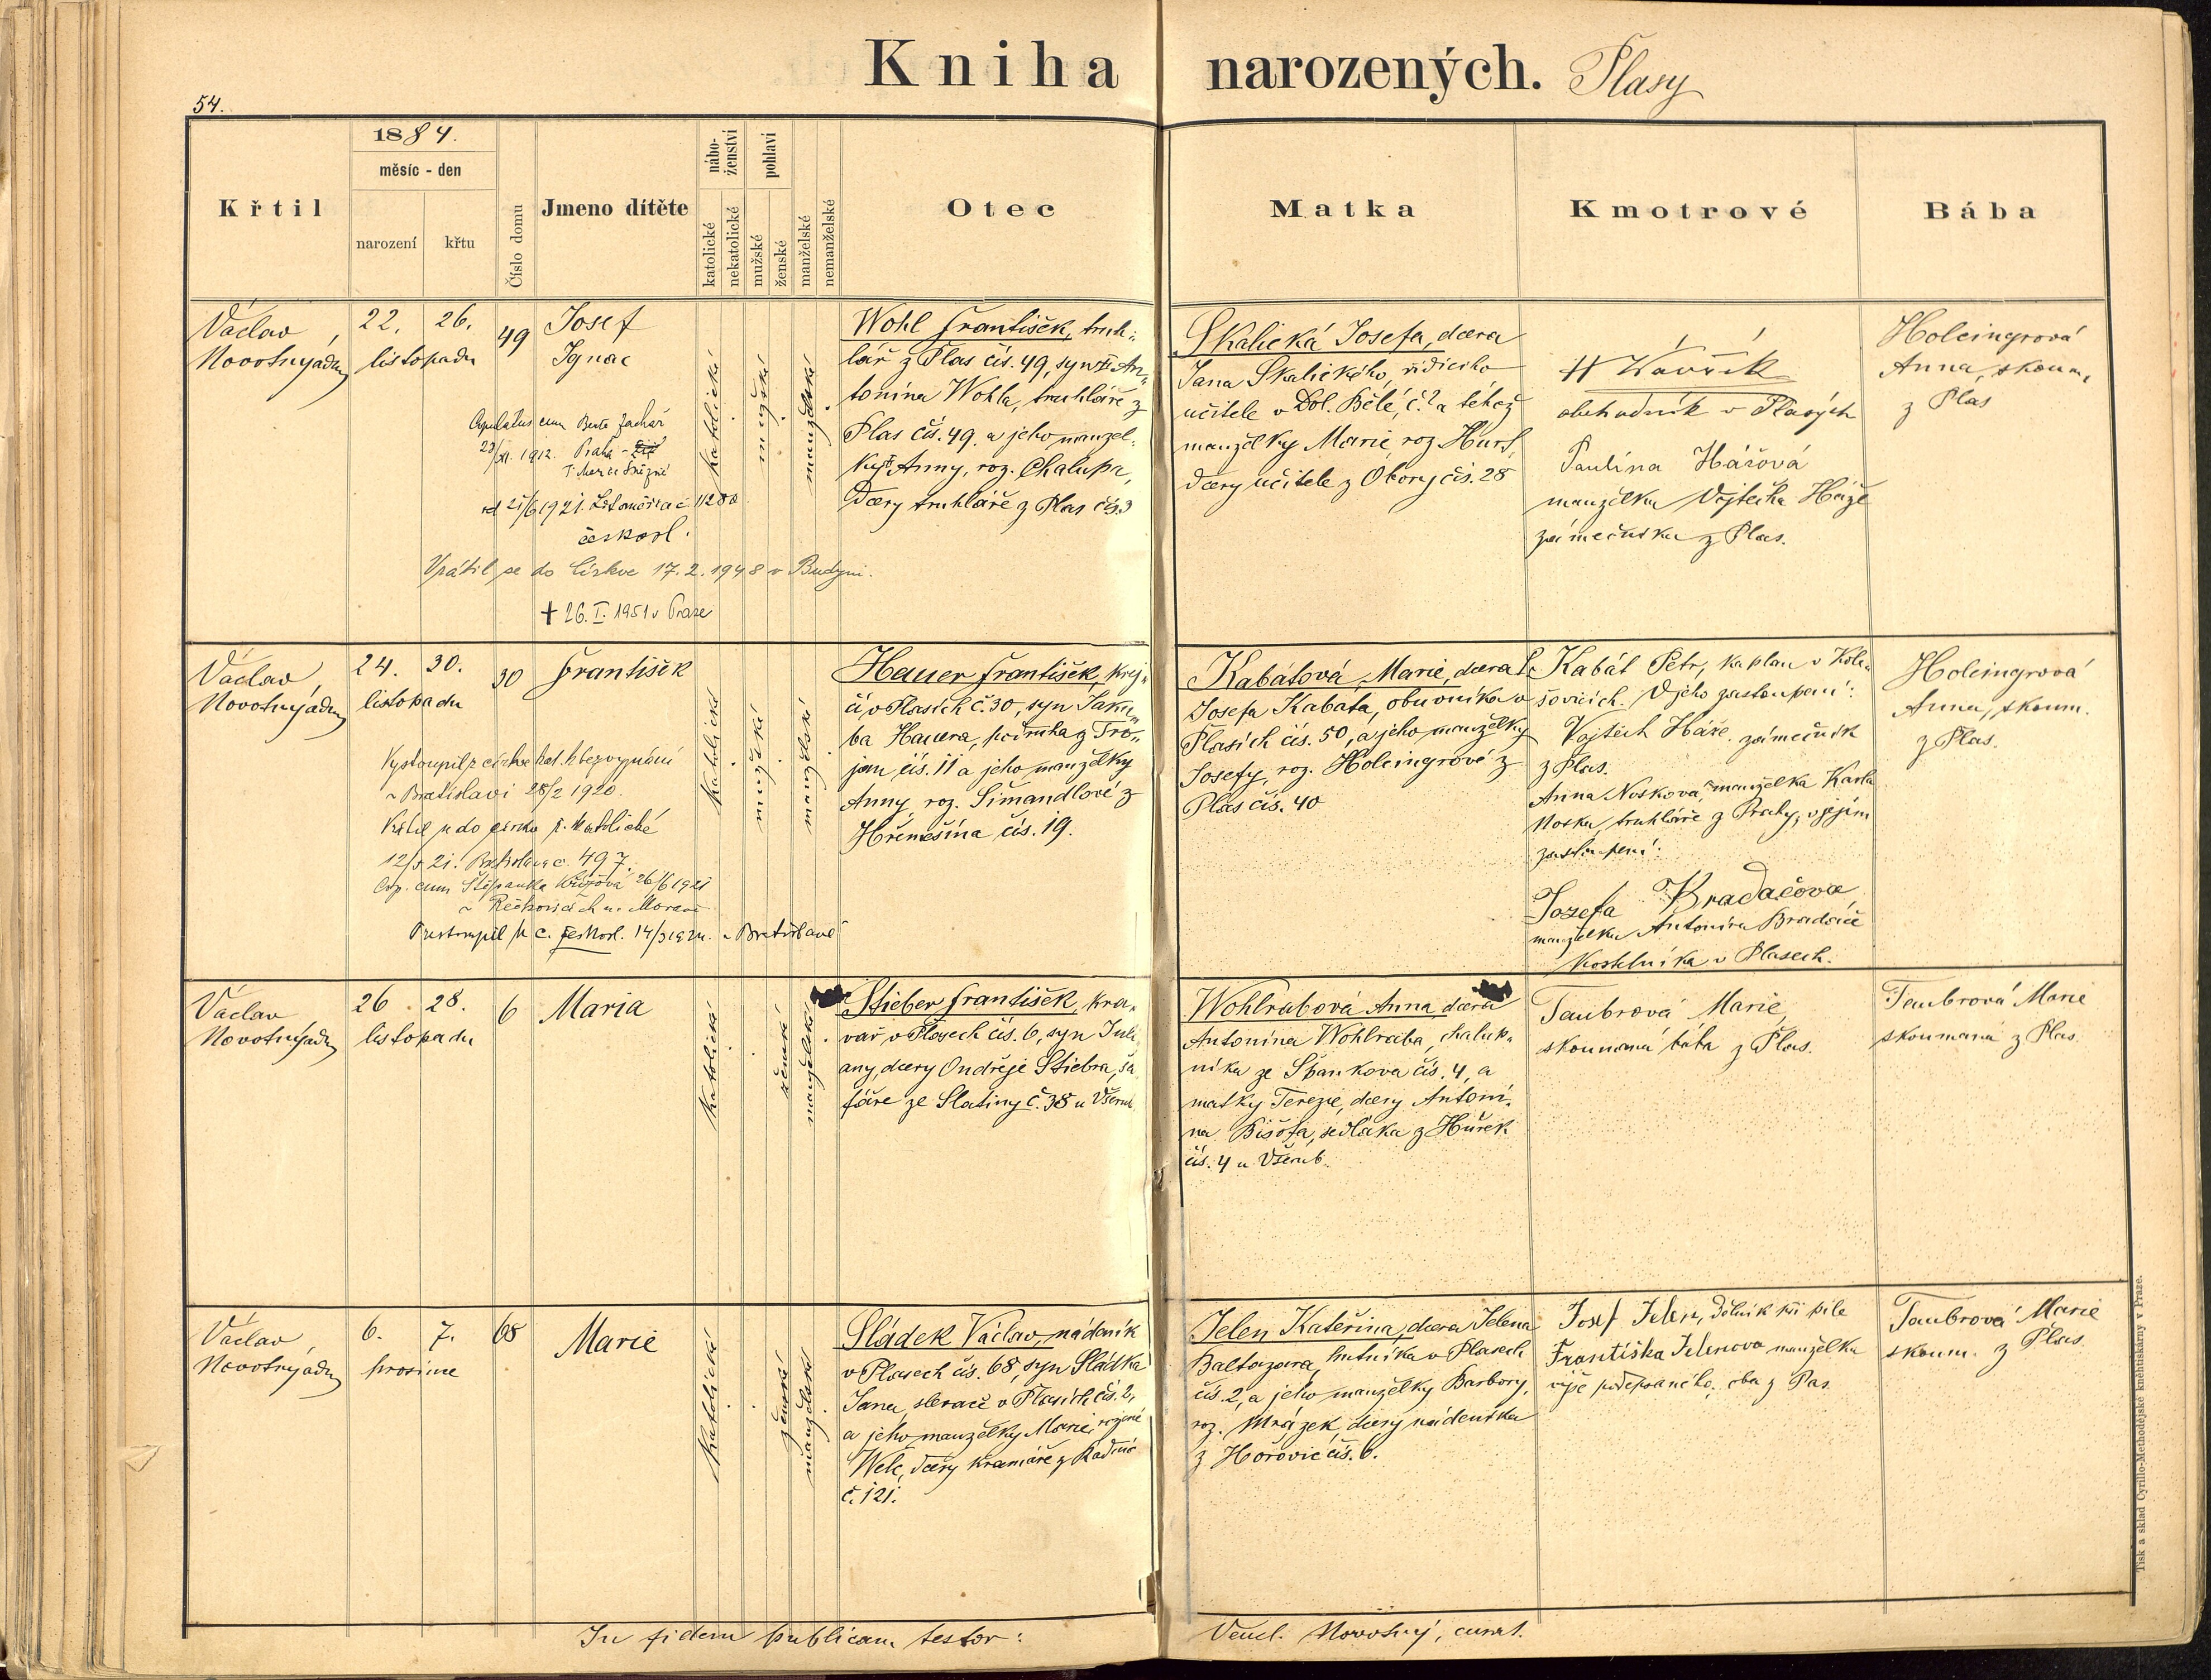 54.
Kniha narozených. Plasy
1884.
měsíc - den
Křtil
narození
křtu
Číslo domu
Jmeno dítěte
nábo-
ženství
katolické
nekatolické
pohlaví
mužské
ženské
manželské
nemanželské
Otec
Matka
Kmotrové
Bába
Václav
Novotný adm
22. 26.
listopadu
49
Josef
Ignac
katolické
mužské
manželské
Copulatus cum Berta
23/XI. 1912. Praha
čís. 1280
českosl.
Vrátil se do Církve 17. 2. 1948 v Budyni.
+ 26. I. 1951 v Praze
Wohl František, truh-
lář z Plas čís. 49, syn An-
tonína Wohla, truhláře z
Plas čís. 49. a jeho manžel-
ky Anny, roz. Chalupa,
dcery truhláře z Plas čís. 3
Skalická Josefa, dcera
Jana Skalického, řídícího
učitele v Dol. Bělé, č. ? a téhož
manželky Marie, roz.
dcery učitele z Obory čís. 28
obchodník v Plasých
Paulina Hášová
manželka Vojtěcha Háše
zámečníka z Plas.
Holeingrová
Anna, skoum.
z Plas
Václav
Novotný adm
24. 30.
listopadu
30
František
katolické
mužské
manželské
Vystoupil z církve kat. k bezvyznání
v Bratislavi 28/2 1920.
do církve ř. katolické
12/5 21. č. 497.
Cop. cum Štěpanka Křížová 26/6 1921
v Řečkovicích na Moravě
Přestoupil k c. českosl. 14/3 v Bratislavě
Hauer František, krej-
čí v Plasích č. 30, syn Jaku-
ba Hauera, podruha z Tro-
jan čís. 11 a jeho manželky
Anny, roz. Šimandlové z
Hřemešína čís. 19.
Kabátová Marie, dcera
Josefa Kabáta, obuvníka v
Plasích čís. 50, a jeho manželky
Josefy, roz. Holeingrové z
Plas čís. 40
Kabát Petr, kaplan v Kole-
šovicích. V jeho zastoupení:
Vojtěch Háše, zámečník
z Plas.
Anna Nosková, manželka Karla
Noska, truhláře z Prahy, v jejím
zastoupení:
Josefa Bradáčova,
manželka Antonína Bradáče
kostelníka v Plasech.
Holeingrová
Anna, skoum.
z Plas.
Václav
Novotný adm
26. 28.
listopadu
6
Maria
katolické
ženské
manželské
Stieber František, kra-
vař v Plasech čís. 6, syn Juli-
any, dcery Ondřeje Stiebra, ša-
fáře ze Slatiny č. 38 u Všerub
Wohlrabová Anna dcera
Antonína Wohlraba, chalup-
níka ze Špankova čís. 4, a
matky Terezie, dcery Antoni-
na Bišofa, sedláka z Hůrek
čís. 4 u Všerub.
Taubrová Marie,
skoumaná bába z Plas.
Taubrová Marie
skoumaná z Plas.
Václav
Novotný adm
6. 7.
prosince
68
Marie
katolické
ženské
manželské
Sládek Václav, nádeník
v Plasech čís. 68, syn Sládka
Jana, slevače v Plasích čís. 2,
a jeho manželky Marie, rozené
Welc, dcery kramáře z Radnic
č. 121.
Jelen Kateřina, dcera Jelena
Baltazara, hutníka v Plasech
čís. 2, a jeho manželky Barbory,
roz. Mrázek, dcery nádeníka
z Hořovic čís. 6.
Josef Jelen, dělník při pile
Františka Jelenova manželka
výše podepsaného. oba z Plas
Taubrová Marie
skoum. z Plas.
In fidem publicam testor: Vencl. Novotný, curat.
Tisk a sklad Cyrillo-Methodějské knihtiskárny v Praze.